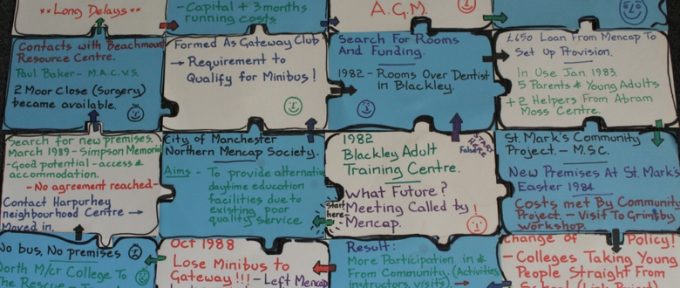 ** Long Delays **
- Capital + 3 months
running costs
A.G.M.
Contacts with Beachmount
Resource Centre.
Paul Baker - M.A.C.V.S.
2 Moor Close (Surgery)
became available.
Formed As Gateway Club
→ Requirement to
Qualify for Minibus!
Search For Rooms
And Funding.
1982 - Rooms Over Dentist
in Blackley.
£650 Loan From Mencap To
Set Up Provision.
In Use Jan 1983
5 Parents & Young Adults
+ 2 Helpers From Abram
Moss Centre.
Search for new premises.
March 1989 - Simpson Memorial
- Good potential - access &
accommodation.
- No agreement reached -
Contact Harpurhey
neighbourhood Centre →
Moved in.
City of Manchester
Northern Mencap Society.
Aims - To provide alternative
daytime education
facilities due to
existing poor
quality service
Start
here
1982
Blackley Adult
Training Centre.
What Future?
Meeting Called by
Mencap.
START
False
HERE
St. Mark's Community
Project. - M.S.C.
New Premises At St. Mark's
Easter 1984
Costs met By Community
Project - Visit To Grimsby
workshop.
No bus, No premises
North M/cr College To
The Rescue
Oct 1988
Lose Minibus to
Gateway!!! - Left Mencap
Result:
More Participation in &
From Community. (Activities
instructors, visits)
Change of Policy!
- Colleges Taking Young
People Straight From
School (Link Project)